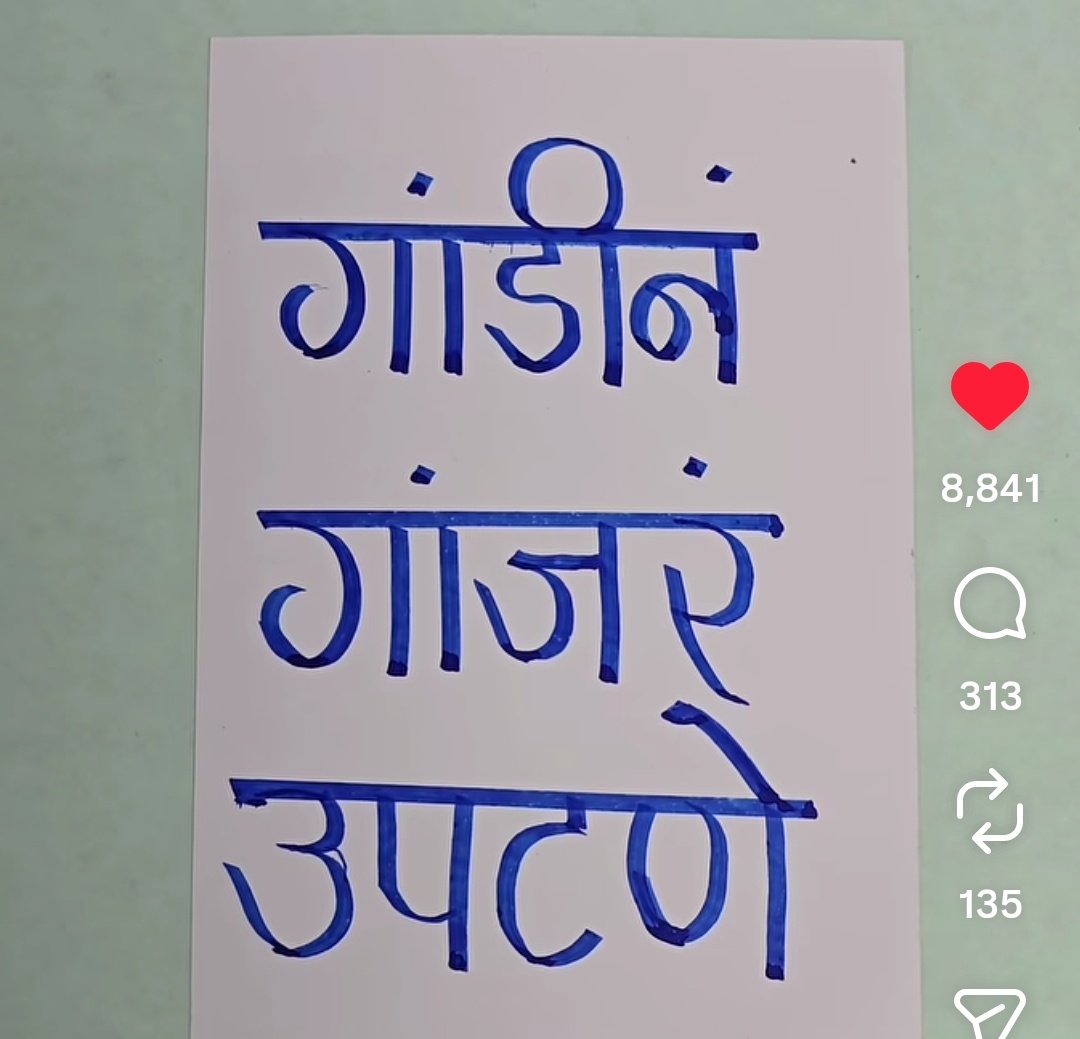 गांडीनं
गाजंरं
उपटणे
8,841
313
135